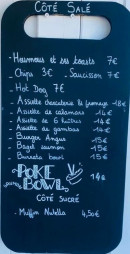 CÔTÉ SALÉ
- Houmous et ses toasts 7€
- Chips 3€ - Saucisson 7€
- Hot Dog 7€
- Assiette charcuterie & fromage 18€
- Assiette de calamars 14€
- Assiette de 6 huîtres 14€
- Assiette de gambas 14€
- Burger Angus 15€
- Bagel saumon 15€
- Burrata bowl 15€
POKE BOWL 14€
CÔTÉ SUCRÉ
- Muffin Nutella 4,50€